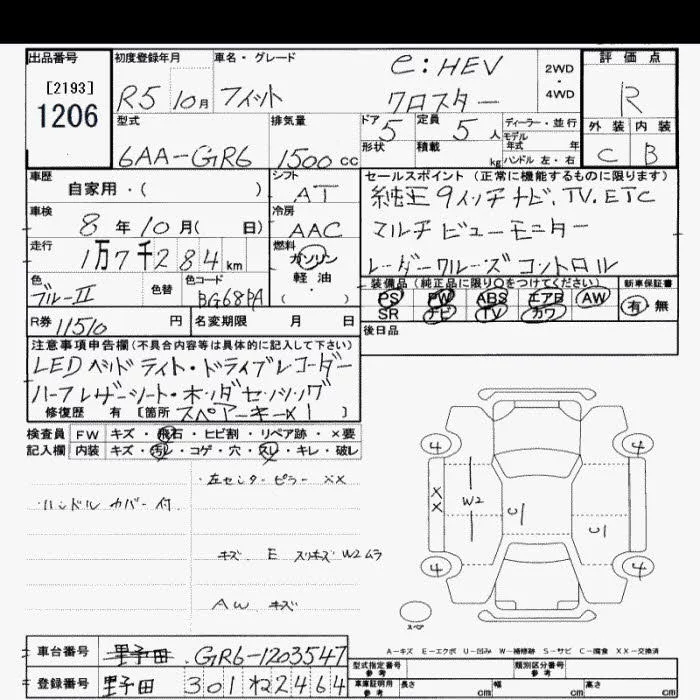 出品番号
[2193]
1206
初度登録年月
R5 10月
車名・グレード
フィット
e:HEV
クロスター
2WD
・
4WD
評価点
R
外装 内装
C B
型式
6AA-GR6
排気量
1500cc
ドア 5
定員 5人
形状
積載 kg
ディーラー・並行
モデル年式 年
ハンドル 左・右
車歴
自家用・( )
シフト
AT
車検
8年10月( 日)
冷房
AAC
走行
1万7千284km
燃料
ガソリン
軽油
( )
色
ブルーII
色替
色コード
BG68PA
セールスポイント(正常に機能するものに限ります)
純正9インチナビ、TV、ETC
マルチビューモニター
レーダークルーズコントロール
装備品(純正品に限り○をつけてください)
PS PW ABS エアB AW
SR ナビ TV カワ
新車保証書
有・無
後日品
R券 11510円
名変期限 月 日
注意事項申告欄(不具合内容等は具体的に記入して下さい)
LEDヘッドライト・ドライブレコーダー
ハーフレザーシート・ホンダセンシング
修復歴 有 [箇所 スペアーキー×1 ]
検査員記入欄
FW キズ・飛石・ヒビ割・リペア跡・×要
内装 キズ・汚レ・コゲ・穴・スレ・キレ・破レ
・ハンドルカバー付
・左センターピラー XX
キズ E スリキズ W2ムラ
AW キズ
4 4
XX W2 U U
4 4
スペア
A-キズ E-エクボ U-凹み W-補修跡 S-サビ C-腐食 XX-交換済
車台番号 GR6-1203547
登録番号 野田 301 ね 2464
型式指定番号 参考
類別区分番号 参考
車庫証明用 参考 長さ cm 幅 cm 高さ cm